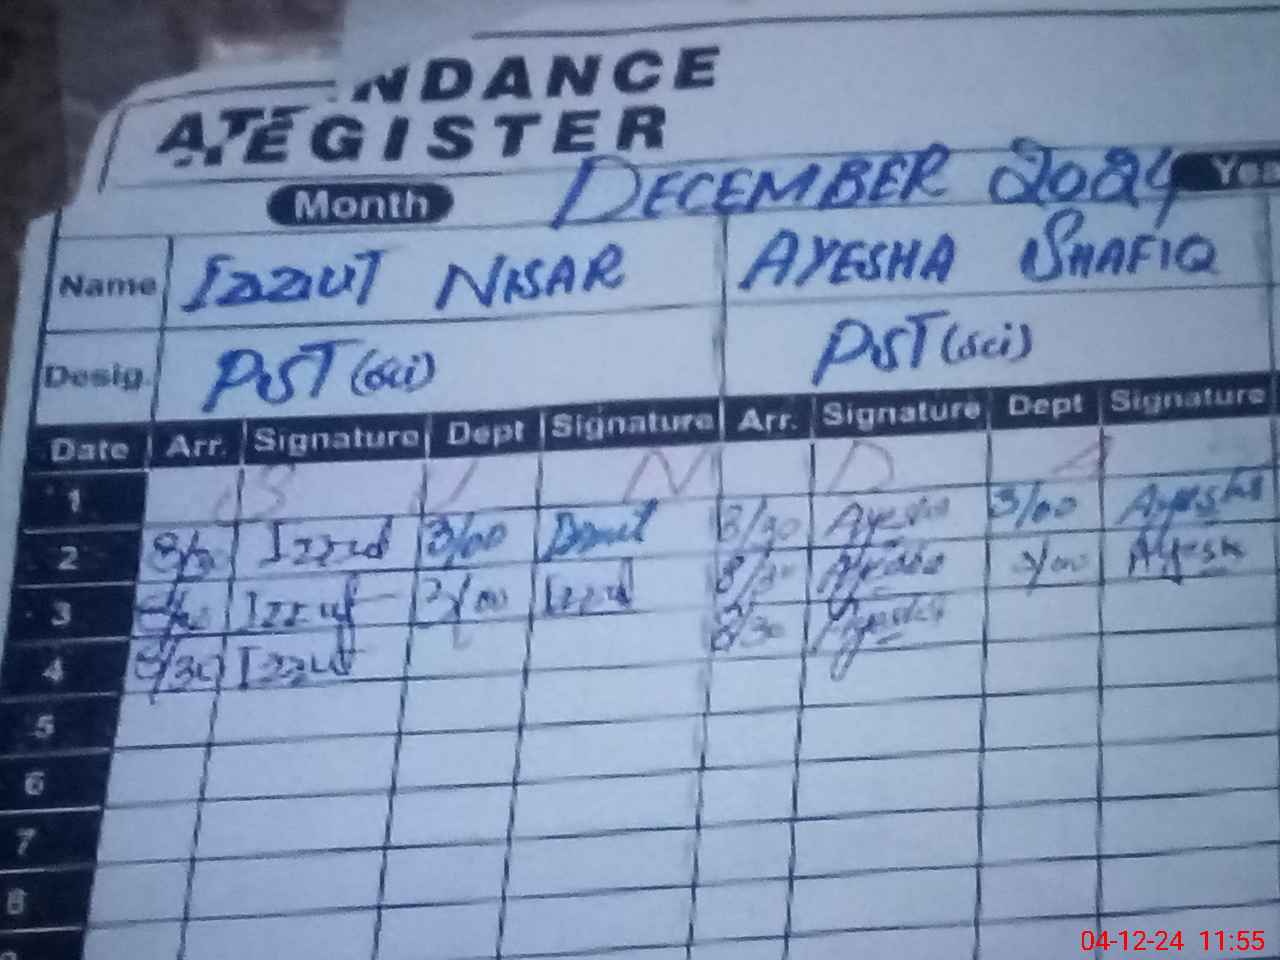 ATTENDANCE
REGISTER
Month DECEMBER 2024 Yea
Name IZZUT NISAR AYESHA SHAFIQ
Desig. PST (sci) PST (sci)
Date Arr. Signature Dept Signature Arr. Signature Dept Signature
1 S U N D A
2 8/30 Izzut 3/00 Izzut 8/30 Ayesha 3/00 Ayesha
3 8/30 Izzut 3/00 Izzut 8/30 Ayesha 3/00 Ayesha
4 8/30 Izzut 8/30 Ayesha
5
6
7
8
04-12-24 11:55